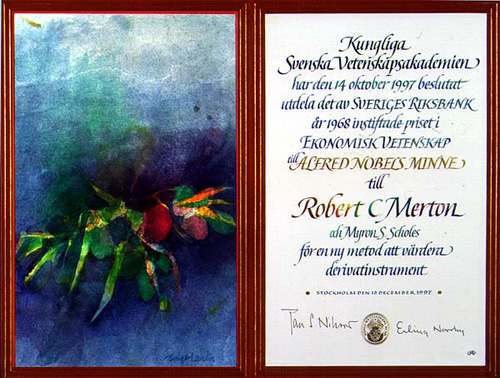 Kungliga
Svenska Vetenskapsakademien
har den 14 oktober 1997 beslutat
utdela det av SVERIGES RIKSBANK
år 1968 instiftade priset i
EKONOMISK VETENSKAP
till ALFRED NOBELS MINNE
till
Robert C Merton
och Myron S. Scholes
för en ny metod att värdera
derivatinstrument
• STOCKHOLM DEN 10 DECEMBER 1997 •
Jan S. Nilsson Erling Norrby